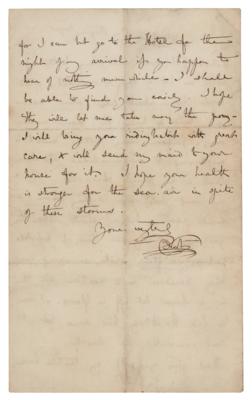 for I can but go to the Hotel for the
night of my arrival if you happen to
hear of nothing meanwhile - I shall
be able to find you easily I hope
they will let me take away the pony -
I will bring your riding habit with great
care, & will send my maid to your
house for it. I hope your health
is stronger for the sea air in spite
of these storms.
Yours